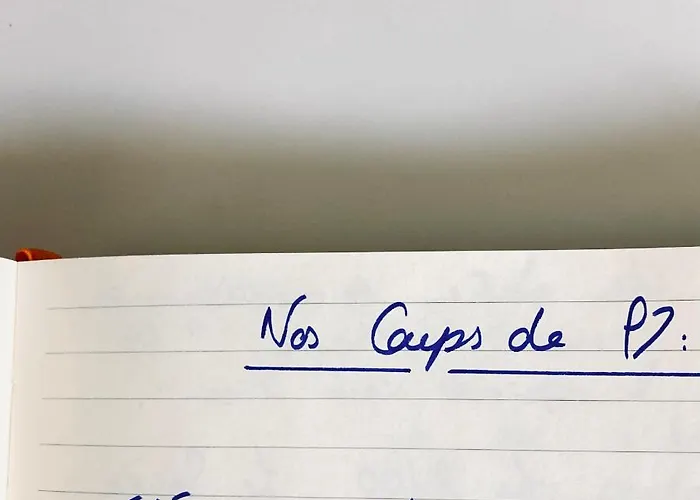 Nos Coups de